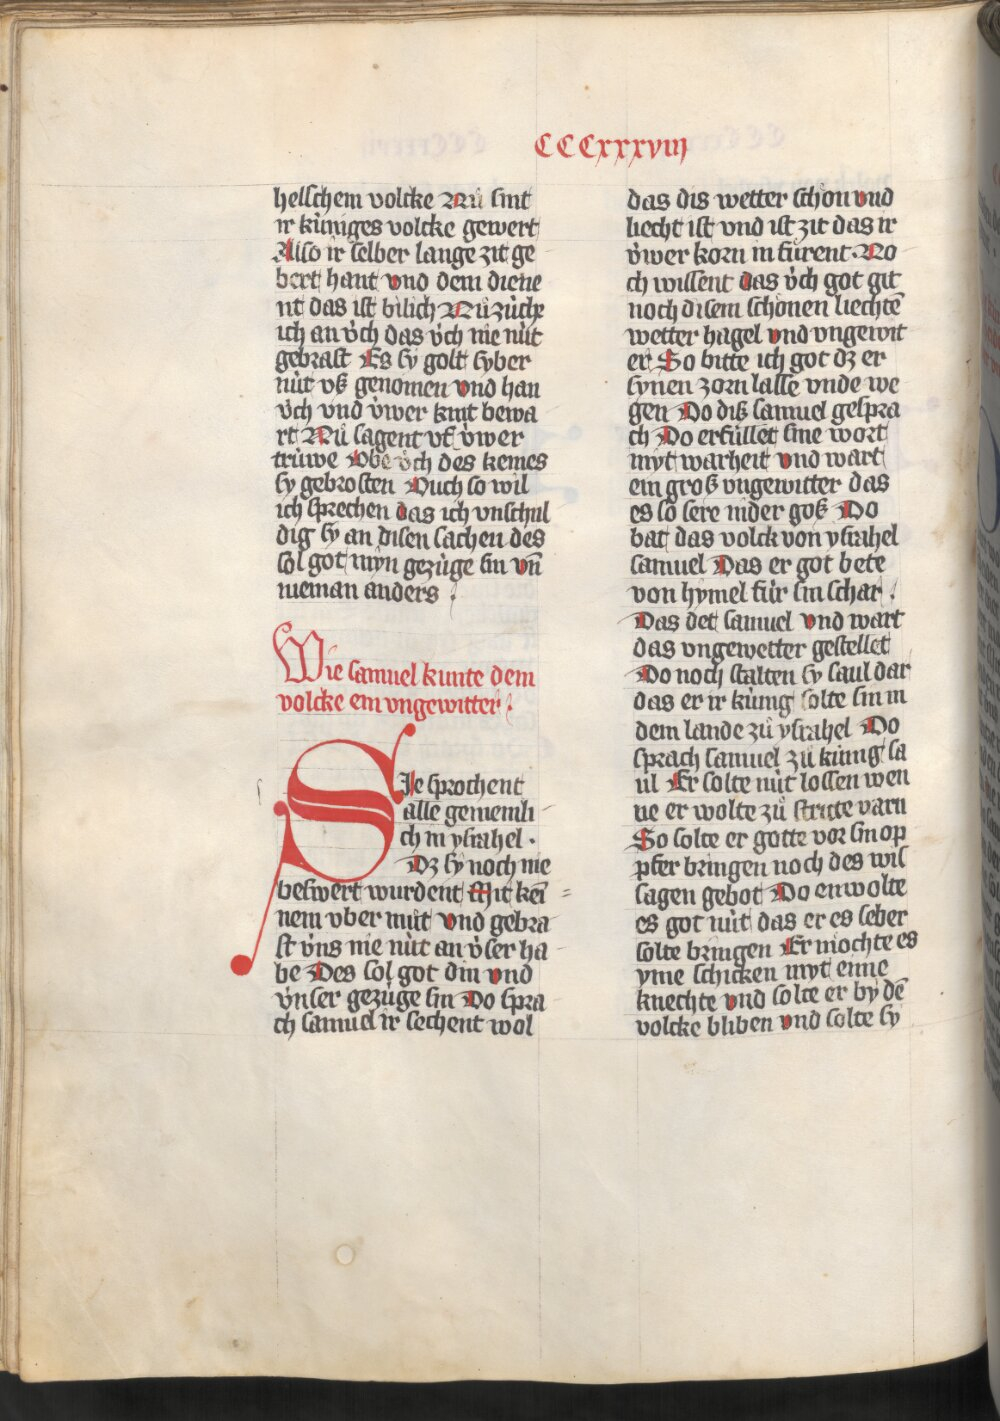 CCCxxxviij
helschem volcke Nuͦ sint
ir kúniges volcke gewert
Also ir selber lange zit ge
bert hant vnd dem diene
nt das ist bilich Nuͦ zúche
ich an v́ch das v́ch nie nút
gebrast Es sy golt syber
nút vß genomen vnd han
v́ch vnd v́wer kint bewa
rt Nuͦ sagent vf v́wer
trúwe Obe v́ch des keines
sy gebrosten Ouch so wil
ich sprechen das ich vnschul
dig sy an disen sachen des
sol got myn gezúge sin vn̄
nieman anders
Wie samuel kunte dem
volcke ein vngewitter
SJe sprochent
alle gemeinli
ch in ysrahel ·
Dz sy noch nie
beswert wurdent Mit keī
nem vber muͦt vnd gebra
st v́ns nie nút an v́ser ha
be Des sol got din vnd
v́nser gezúge sin Do spra
ch samuel ir sechent wol
das dis wetter schon vnd
liecht ist vnd ist zit das ir
v́wer korn in fúrent · No
ch wissent das v́ch got git
noch disem schonen liechtē
wetter hagel vnd vngewit
er So bitte ich got dz er
synen zorn lasse vnde we
gen Do diß samuel gespra
ch Do erfúllet sine wort
myt warheit vnd wart
ein groß vngewitter das
es so sere nider goß Do
bat das volck von ysrahel
samuel Das er got bete
von hymel fúr sin schar
Das det samuel vnd wart
das vngewetter gestellet
Do noch stalten sy saul dar
das er ir kúnig solte sin in
dem lande zuͦ ysrahel Do
sprach samuel zuͦ kúnig sa
ul Er solte nút lossen wen
ne er wolte zuͦ stritte varn
So solte er gotte vor sin op
pfer bringen noch des wis
sagen gebot Do enwolte
es got nút das er es selber
solte bringen Er mochte es
yme schicken myt eime
knechte vnd solte er by dē
volcke bliben vnd solte sy